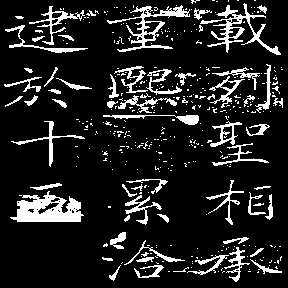 載列聖相承
重熙累洽
逮於十